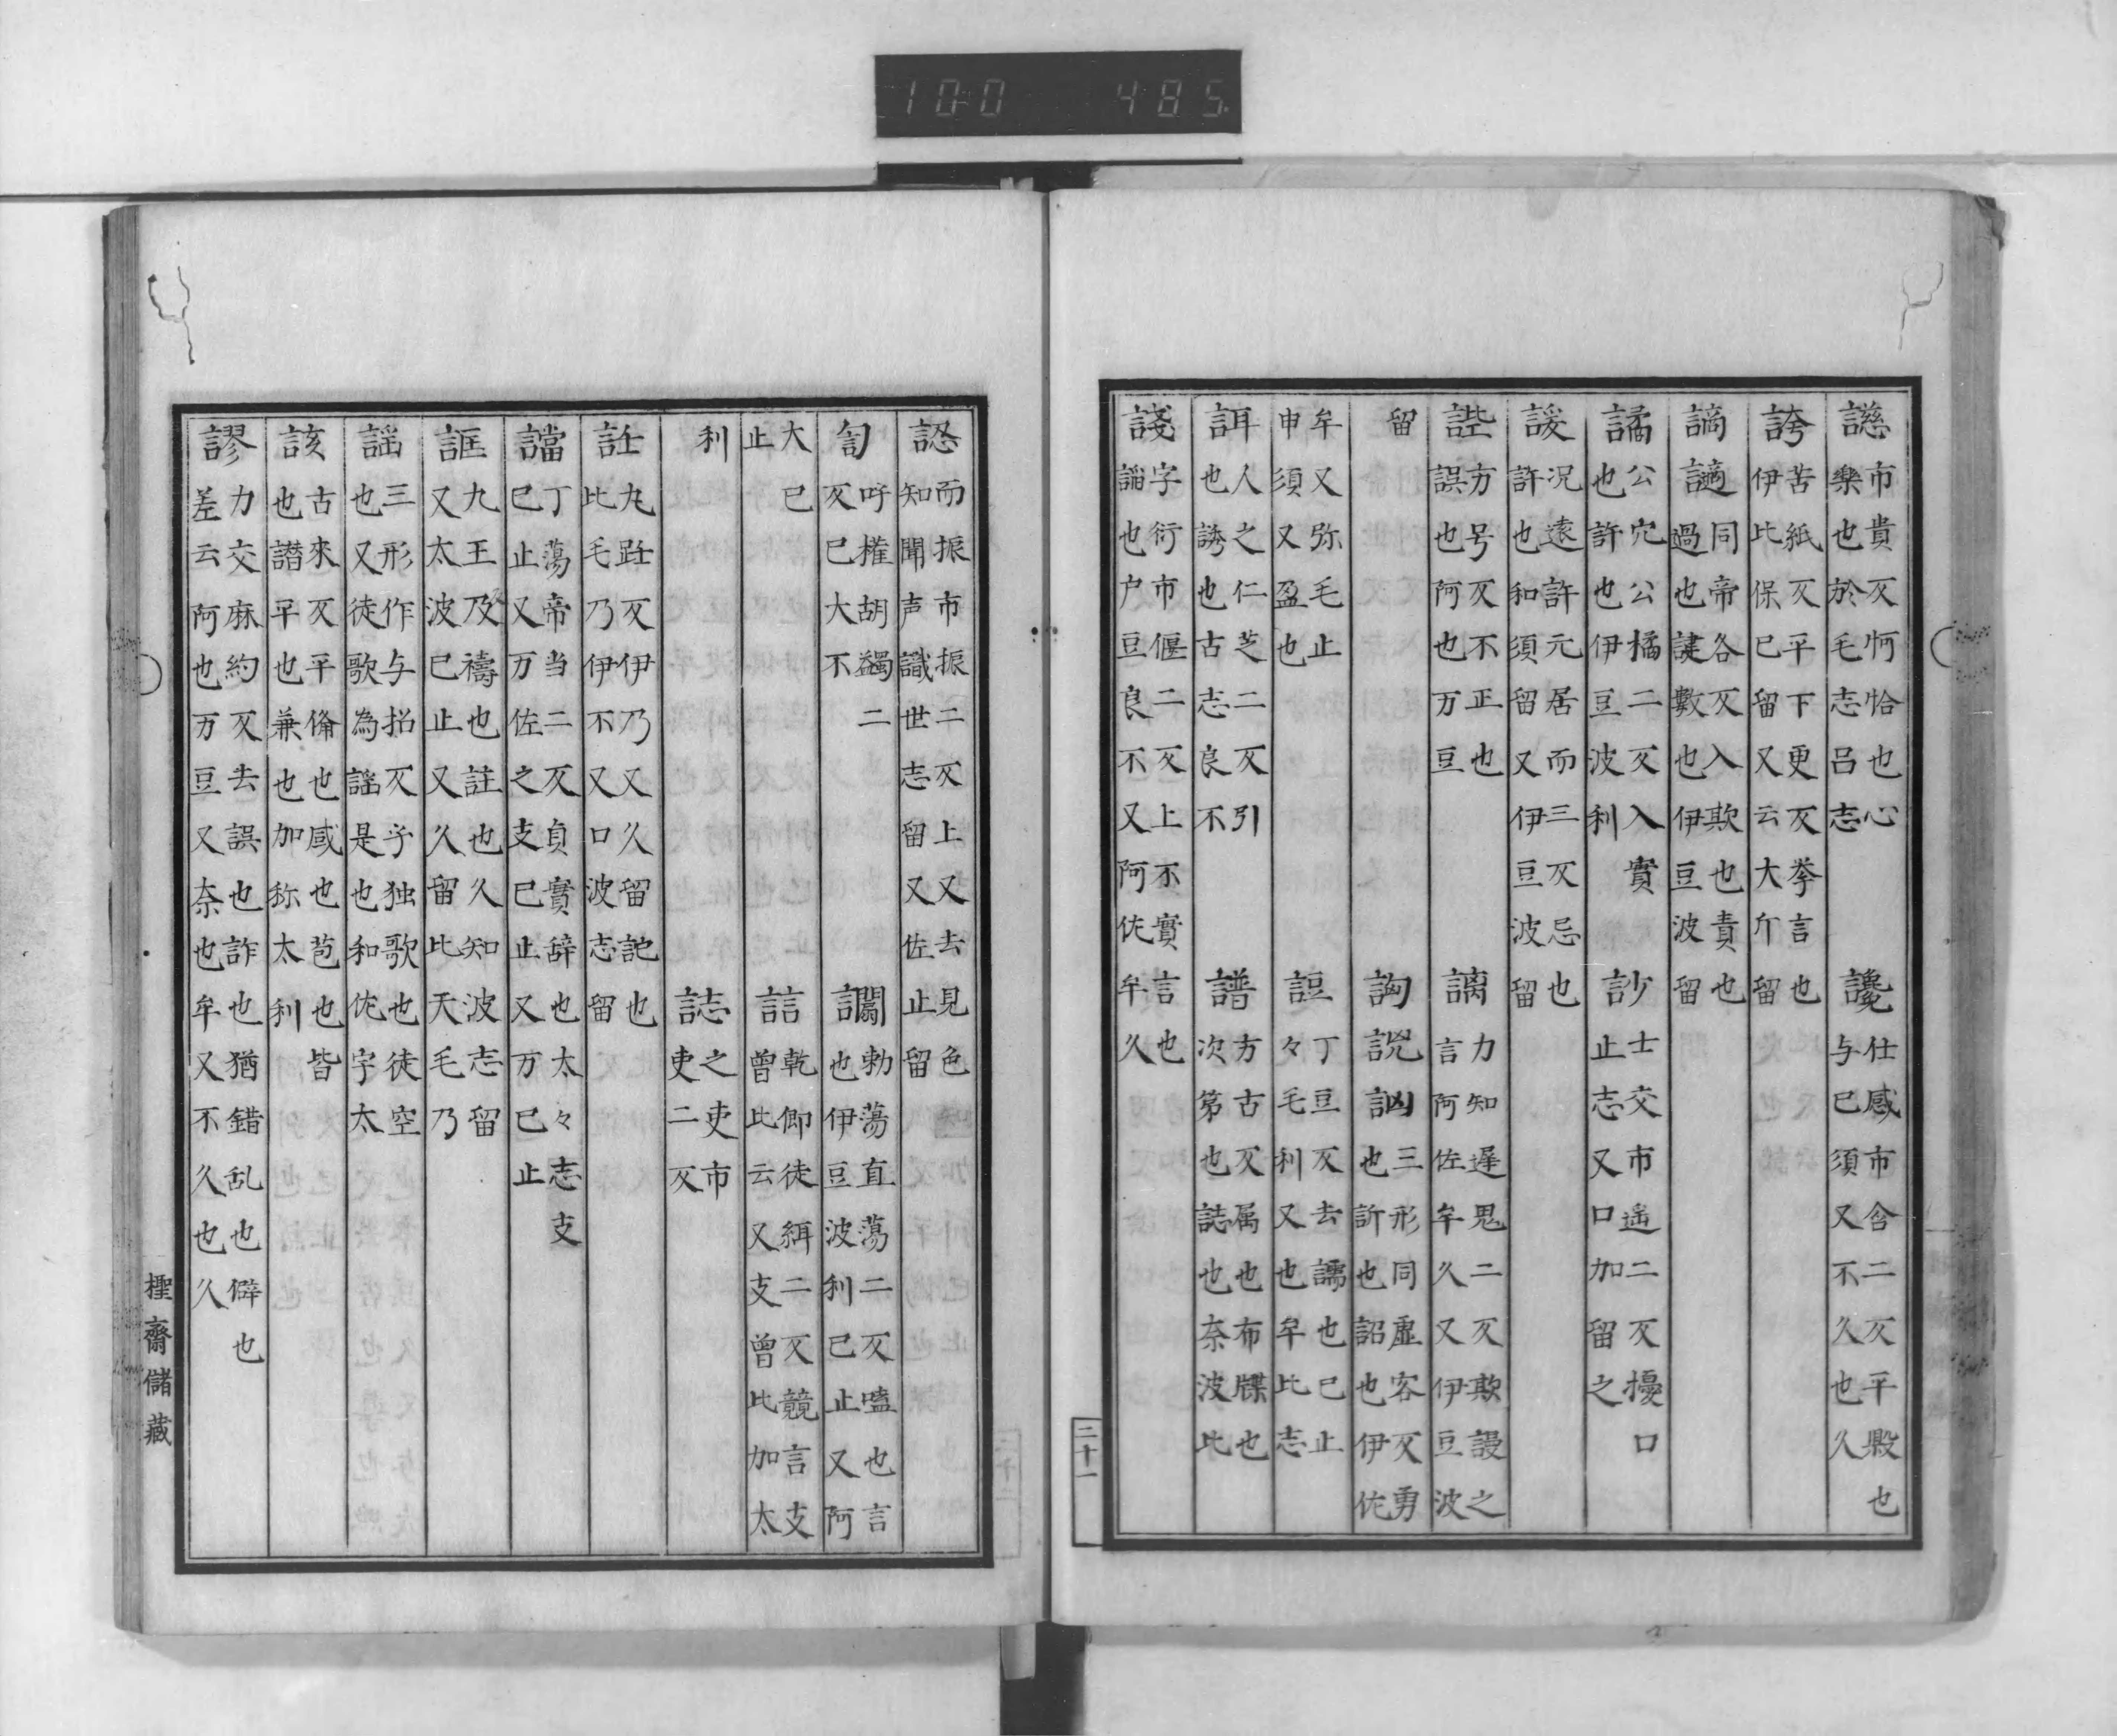 市貴反怜恰也心樂也於毛志呂志　讒仕感市含二反平毀也与己須又不久也久
誇苦紙反平下更反夸言也伊比保己留又云大介留
謫讁同帝各反入欺也責也過也譴數也伊豆波留
譎公穴公橘二反入實也許也伊豆波利　訬士交市遙二反擾口止志又口加留之
諼况遠許元居而三反忌也許也和須留又伊豆波留
方号反不正也誤也阿也万豆　謧力知遲思二反欺謾之言阿佐牟久又伊豆波
留　訩三形同虛容反勇也訢也詔也伊佐
牟又弥毛止申須又盈也　䛠丁豆反去譳也己止々毛利又也牟比志
誀人之仁芝二反引也誘也古志良不　譜方古反属也布牒也次第也誌也奈波比
諓字衍市偃二反上不實言也諂也户豆良不又阿佐牟久
二十一
認而振市振二反上又去見色知聞声識世志留又佐止留
訇呼權胡蠲二反己大不　讕勑蕩直蕩二反嗑也言也伊豆波利己止又阿
大己止　誩乾仰徒緝二反競言支曾比云又支曾比加太
利　誌之吏市吏二反
九跓反伊乃又久留記也此毛乃伊不又口波志留
譡丁蕩帝当二反貞實辞也太々志支己止又万佐之支己止又万己止
誆九王反禱也註也久知波志留又太波己止又久留比天毛乃
謡三形作与招反孑独歌也徒空也又徒歌為謡是也和佐宇太
該古來反平備也咸也苞也皆也譛平也兼也加祢太利
謬力交麻約反去誤也詐也猶錯乱也僻也差云阿也万豆又奈也牟又不久也久
檉齋儲藏
100 485